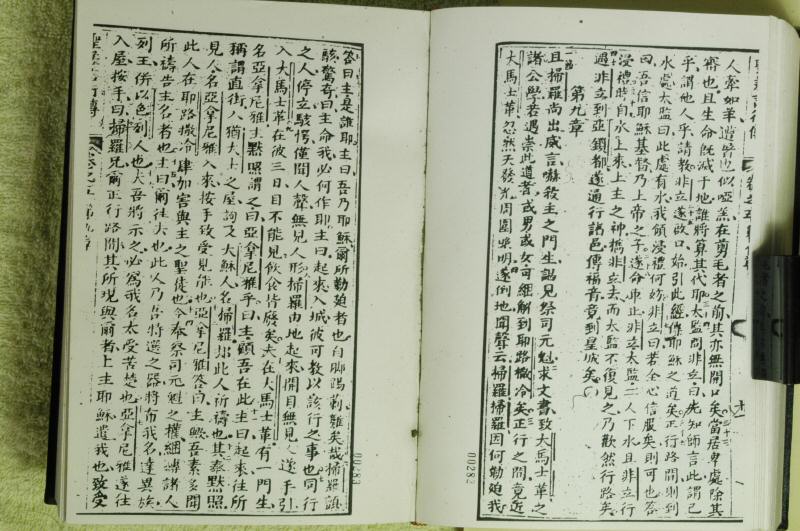 人牽如羊遭宰也似啞羔在剪毛者之前其亦無開口矣當居卑處除其
審也且生命既滅于地誰將算其代耶太監問非立曰先知師言此謂己
乎謂他人乎請教非立遂啟口始引此經傳耶穌之道矣正行路間到
水處太監曰此處有水我領浸禮何妨非立曰若全心信服矣則可也答
曰吾信耶穌基督乃上帝之子遂命車止非立太監二人下水且非立行
浸禮時自水上來上主之神攜非立去而太監不復見之乃歡然行路矣
過非立到亞鎖都遂通行諸邑傳福音竟到皇城矣
第九章
且掃羅尚出威言嚇殺主之門生謁見祭司元魁求文書致大馬士革之
諸公學若遇崇此道者或男或女可綑解到耶路撒冷矣正行之間竟近
大馬士革忽然天發光周圍照明遂倒地聞聲云掃羅掃羅因何勒廹我
答曰主是誰耶主曰吾乃耶穌爾所勒廹者也自腳踢刺難矣哉掃羅顫
駭驚奇曰主命我必何作耶主曰起來入城彼可教以該行之事也同行
之人停立駭愕僅聞人聲無見人形掃羅由地起來開目無見人遂手引
入大馬士革在彼三日目不能見飲食皆廢矣夫在大馬士革有一門生
名亞拿尼雅主默照謂之曰亞拿尼雅乎曰主顧吾在此主曰起來往所
稱謂直街入猶大士之屋詢及大蘇人名掃羅此人祈禱也其泰默照
見人名亞拿尼雅入來按手致受見能也亞拿尼雅答曰主歟吾素多聞
此人在耶路撒冷肆加害與主之聖徒也今奉祭司元魁之權綑縛諸人
所禱告主名者也主曰爾往去也此人乃吾特選之器將布我名達異族
列王併以色列人也夫吾將示之必為我名太受苦楚也亞拿尼雅遂往
入屋按手曰掃羅兄爾正行路間其所現與爾者上主耶穌遣我也致受
00283
00283